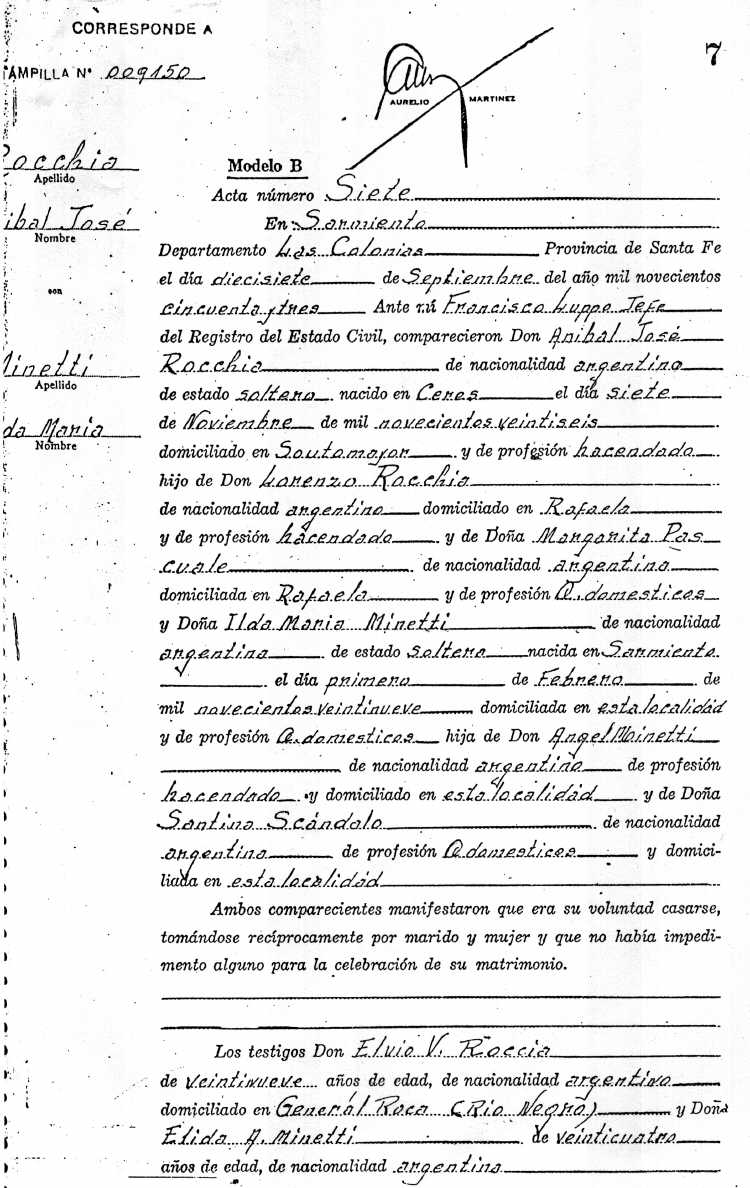 CORRESPONDE A
7
AMPILLA Nº 009150
AURELIO MARTINEZ
occhia
Apellido
Modelo B
Acta número Siete
ibal José
Nombre
En Sarmiento
Departamento Las Colonias Provincia de Santa Fe
el día diecisiete de Septiembre del año mil novecientos
con
cincuenta y tres Ante mí Francisco Luppo Jefe
del Registro del Estado Civil, comparecieron Don Anibal José
inetti
Rocchia de nacionalidad argentino
Apellido
de estado soltero nacido en Ceres el día siete
da Maria
de Noviembre de mil novecientos veintiseis
Nombre
domiciliado en Soutomayor y de profesión hacendado
hijo de Don Lorenzo Rocchia
de nacionalidad argentino domiciliado en Rafaela
y de profesión hacendado y de Doña Margarita Pas
cuale de nacionalidad argentina
domiciliada en Rafaela y de profesión Q. domesticos
y Doña Ilda Maria Minetti de nacionalidad
argentina de estado soltera nacida en Sarmiento
el día primero de Febrero de
mil novecientos veintinueve domiciliada en esta localidad
y de profesión Q. domesticos hija de Don Angel Minetti
de nacionalidad argentino de profesión
hacendado y domiciliado en esta localidad y de Doña
Santina Scándolo de nacionalidad
argentina de profesión Q domesticos y domici-
liada en esta localidad
Ambos comparecientes manifestaron que era su voluntad casarse,
tomándose recíprocamente por marido y mujer y que no había impedi-
mento alguno para la celebración de su matrimonio.
Los testigos Don Elvio V. Roccia
de veintinueve años de edad, de nacionalidad argentino
domiciliado en General Roca (Rio Negro) y Doña
Elida A. Minetti de veinticuatro
años de edad, de nacionalidad argentina